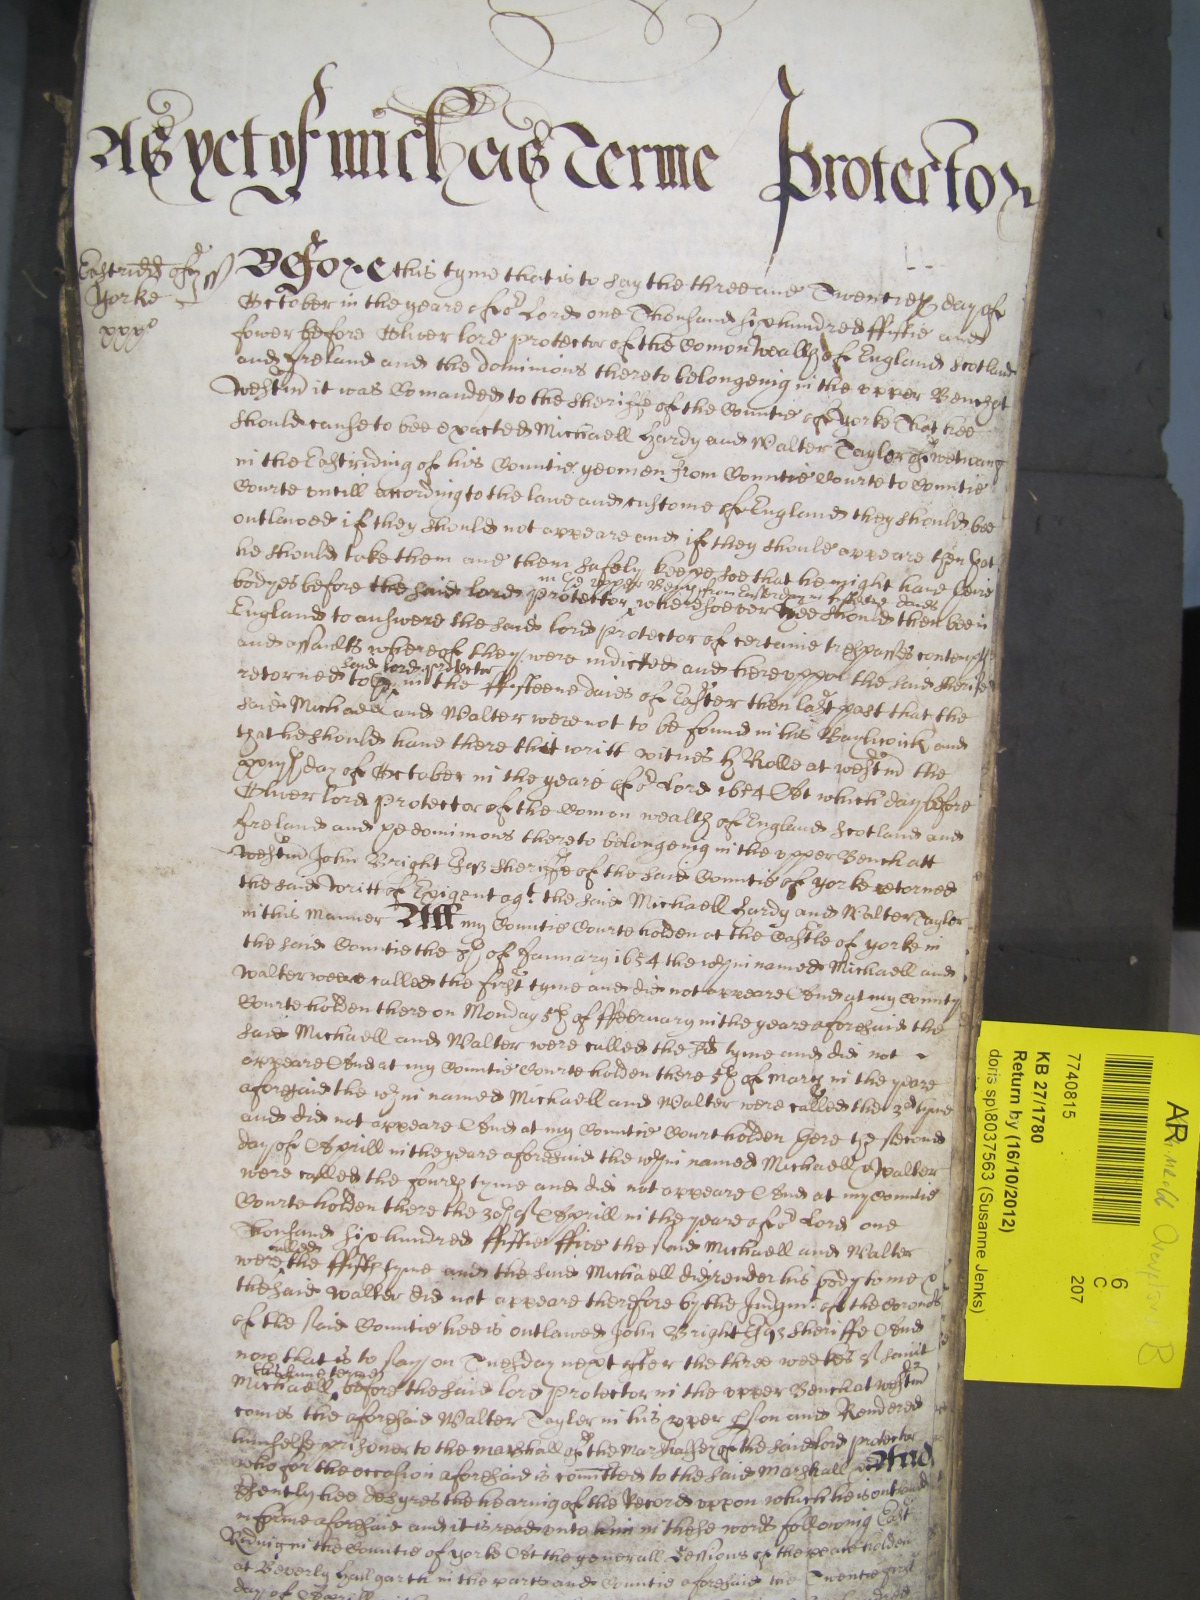 As yet of Mich'as Terme Protector
Eastridd of ye
Yorke ss
xxx o
Before this tyme that is to say the three and Twentieth day of
October in the yeare of or Lord one Thousand six hundred fiftie and
fower before Oliver lord protector of the Comon Wealth of England Scotland
and Ireland and the dominions thereto belongeing in the vpper Bench at
Westmr it was Comanded to the Sheriffe of the Countie of Yorke That hee
should cause to bee exacted Michaell Hardy and Walter Tayler of Wetwang
in the Eastriding of his Countie yeomen from Countie Courte to Countie
Courte vntill according to the lawe and custome of England they should bee
outlawed if they should not appeare and if they should appeare then that
he should take them and them safely keepe soe that he might have their
in the vpper Bench from Easter day in fifteene daies
bodyes before the said lord protector wheresoever hee should then bee in
England to answere the said lord protector of certaine trespasses contempts
and assaults whereof they were indicted and herevppon the said Sheriffe
said lord protector
returned to in the fifteene daies of Easter then last past that the
said Michaell and Walter were not to be found in his Baylwick and
that he should have there that writt witnes H Rolle at Westmr the
xxiijth day of October in the yeare of or Lord 1654 At which day before
Oliver lord protector of the Comon wealth of England Scotland and
Ireland and ye dominions thereto belongeing in the vpper Bench att
Westmr John Bright Esqr Sheriffe of the said Countie of Yorke retorned
the said Writt of Exigent agt the said Michaell Hardy and Walter Tayler
in this Manner Att my Countie Courte holden at the Castle of Yorke in
the said Countie the 8th of January 1654 the wthin named Michaell and
Walter were called the first tyme and did not appeare And at my County
Courte holden there on Monday 5th of February in the yeare aforesaid the
said Michaell and Walter were called the 2d tyme and did not
appeare And at my Countie Courte holden there 5th of March in the yeare
aforesaid the wthin named Michaell and Walter were called the 3d tyme
and did not appeare And at my Countie Court holden there the second
day of Aprill in the yeare aforesaid the wthin named Michaell & Walter
were called the fourth tyme and did not appeare And at my Countie
Courte holden there the 30th of Aprill in the yeare of or Lord one
Thousand six hundred fiftie five the said Michaell and Walter
called
were the fifth tyme and the said Michaell did render his body to me &
the said Walter did not appeare therefore by the Judgmt of the Coronrs
of the said Countie hee is outlawed John Bright Esqr Sheriffe And
now that is to say on Tuesday next after the three weekes of Saint
this same terme
Michaell before the said lord Protector in the vpper Bench at Westmr
comes the aforesaid Walter Tayler in his pper pson and Rendered
himselfe prizoner to the marshall of the Marshalsey of the said lord protector
who for the occasion aforesaid is comitted to the said Marshall &c And
psently hee desyres the hearing of the Record vppon which he is outlawed
in forme aforesaid and it is read vnto him in these words following East
Riding in the Countie of Yorke At the generall Sessions of the peace holden
at Beverly Hallgarth in the parts and Countie aforesaid the Twentie first
day of Aprill
AR
6
C
207
7740815
KB 27/1780
Return by (16/10/2012)
doris sp\8037563 (Susanne Jenks)
B